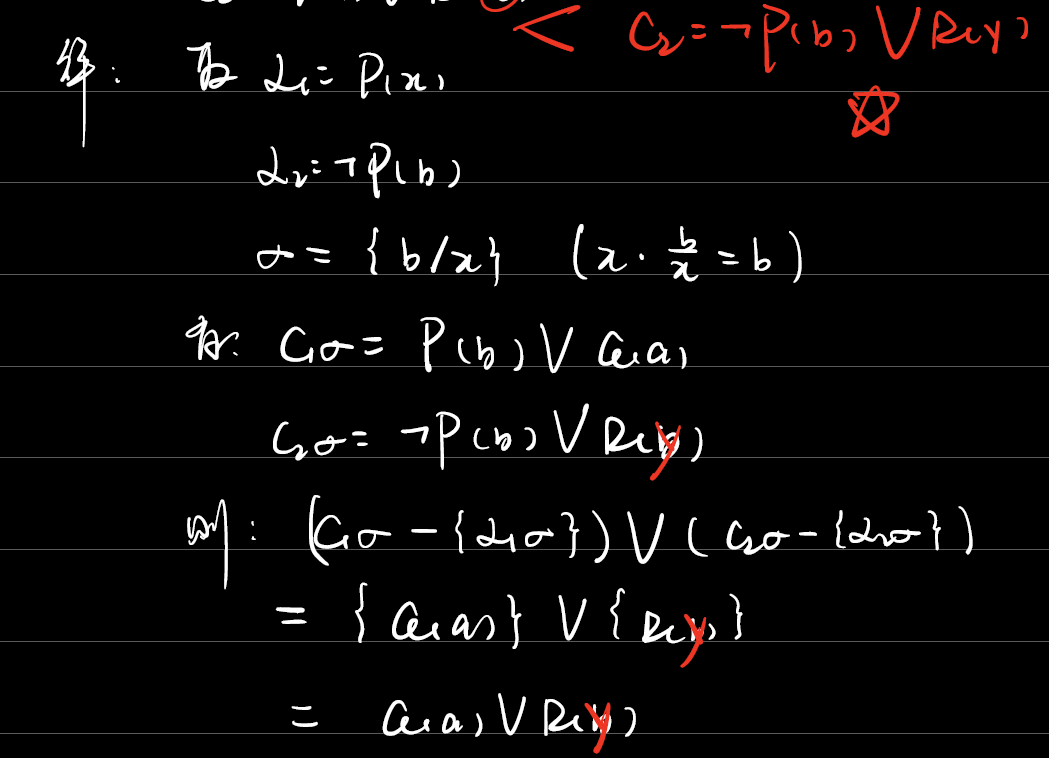 < C₂=¬P(b) ∨ R(y)
解: 取 L₁= P(x)
L₂=¬P(b)
σ = {b/x} (x · b/x = b)
有: C₁σ = P(b) ∨ Q(a)
C₂σ = ¬P(b) ∨ R(y)
则: (C₁σ - {L₁σ}) ∨ (C₂σ - {L₂σ})
= {Q(a)} ∨ {R(y)}
= Q(a) ∨ R(y)